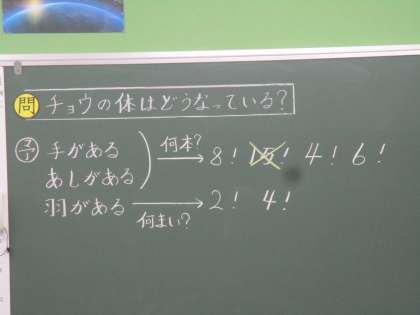 問 チョウの体はどうなっている?
予 手がある 何本? 8! 15! 4! 6!
あしがある
羽がある 何まい? 2! 4!